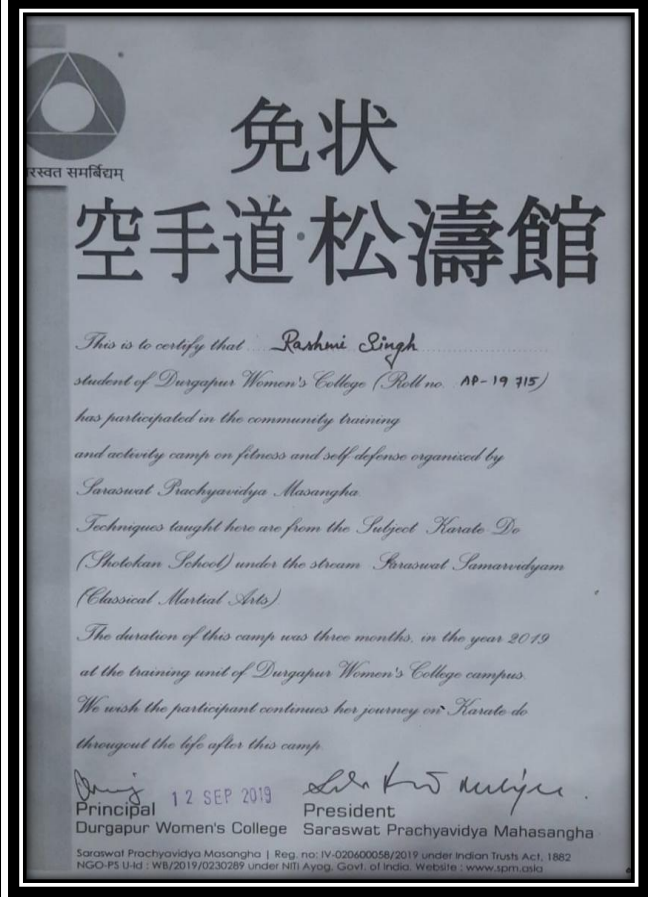 रस्वत समर्बिद्यम्
免状
空手道・松濤館
This is to certify that Rashmi Singh
student of Durgapur Women's College (Roll no. AP-19 715)
has participated in the community training
and activity camp on fitness and self defense organized by
Saraswat Prachyavidya Masangha
Techniques taught here are from the Subject Karate Do
(Shotokan School) under the stream Saraswat Samarvidyam
(Classical Martial Arts)
The duration of this camp was three months, in the year 2019
at the training unit of Durgapur Women's College campus.
We wish the participant continues her journey on Karate do
througout the life after this camp
12 SEP 2019
Principal President
Durgapur Women's College Saraswat Prachyavidya Mahasangha
Saraswat Prachyavidya Masangha | Reg. no: IV-020600058/2019 under Indian Trusts Act, 1882
NGO-PS U-Id : WB/2019/0230289 under NITI Ayog, Govt. of India. Website : www.spm.asia